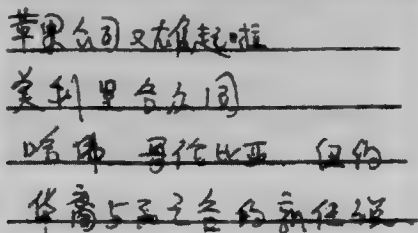 苹果公司又雄起啦
美利坚合众国
哈佛 哥伦比亚 纽约
华裔与孟子会的新传说